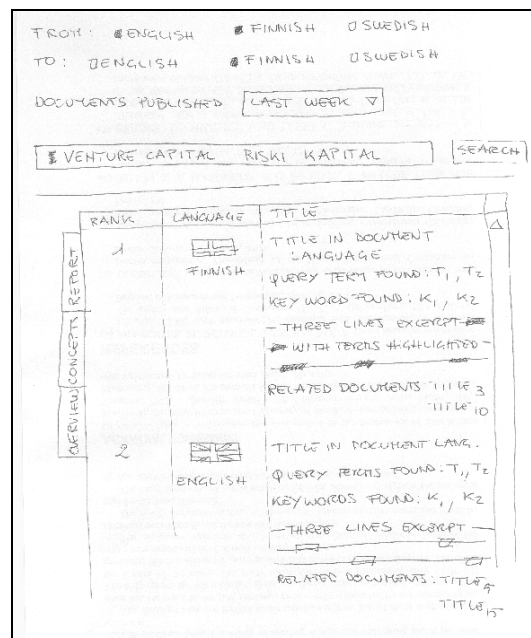 FROM: ENGLISH FINNISH SWEDISH
TO: ENGLISH FINNISH SWEDISH
DOCUMENTS PUBLISHED LAST WEEK
VENTURE CAPITAL RISKI KAPITAL SEARCH
RANK LANGUAGE TITLE
REPORT
CONCEPTS
OVERVIEW
1
FINNISH
TITLE IN DOCUMENT
LANGUAGE
QUERY TERM FOUND: T1, T2
KEY WORD FOUND: K1, K2
- THREE LINES EXCERPT -
- WITH TERMS HIGHLIGHTED -
RELATED DOCUMENTS TITLE 3
TITLE 10
2
ENGLISH
TITLE IN DOCUMENT LANG.
QUERY TERMS FOUND: T1, T2
KEY WORDS FOUND: K1, K2
- THREE LINES EXCERPT -
RELATED DOCUMENTS: TITLE 9
TITLE 15